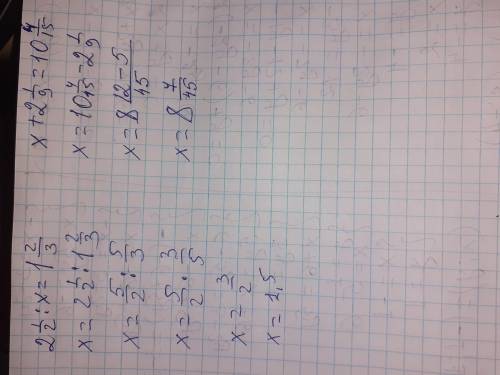 2 1/2 : x = 1 2/3
x = 2 1/2 : 1 2/3
x = 5/2 : 5/3
x = 5/2 · 3/5
x = 3/2
x = 1,5
x + 2 1/9 = 10 4/15
x = 10 4/15 - 2 1/9
x = 8 12-5/45
x = 8 7/45